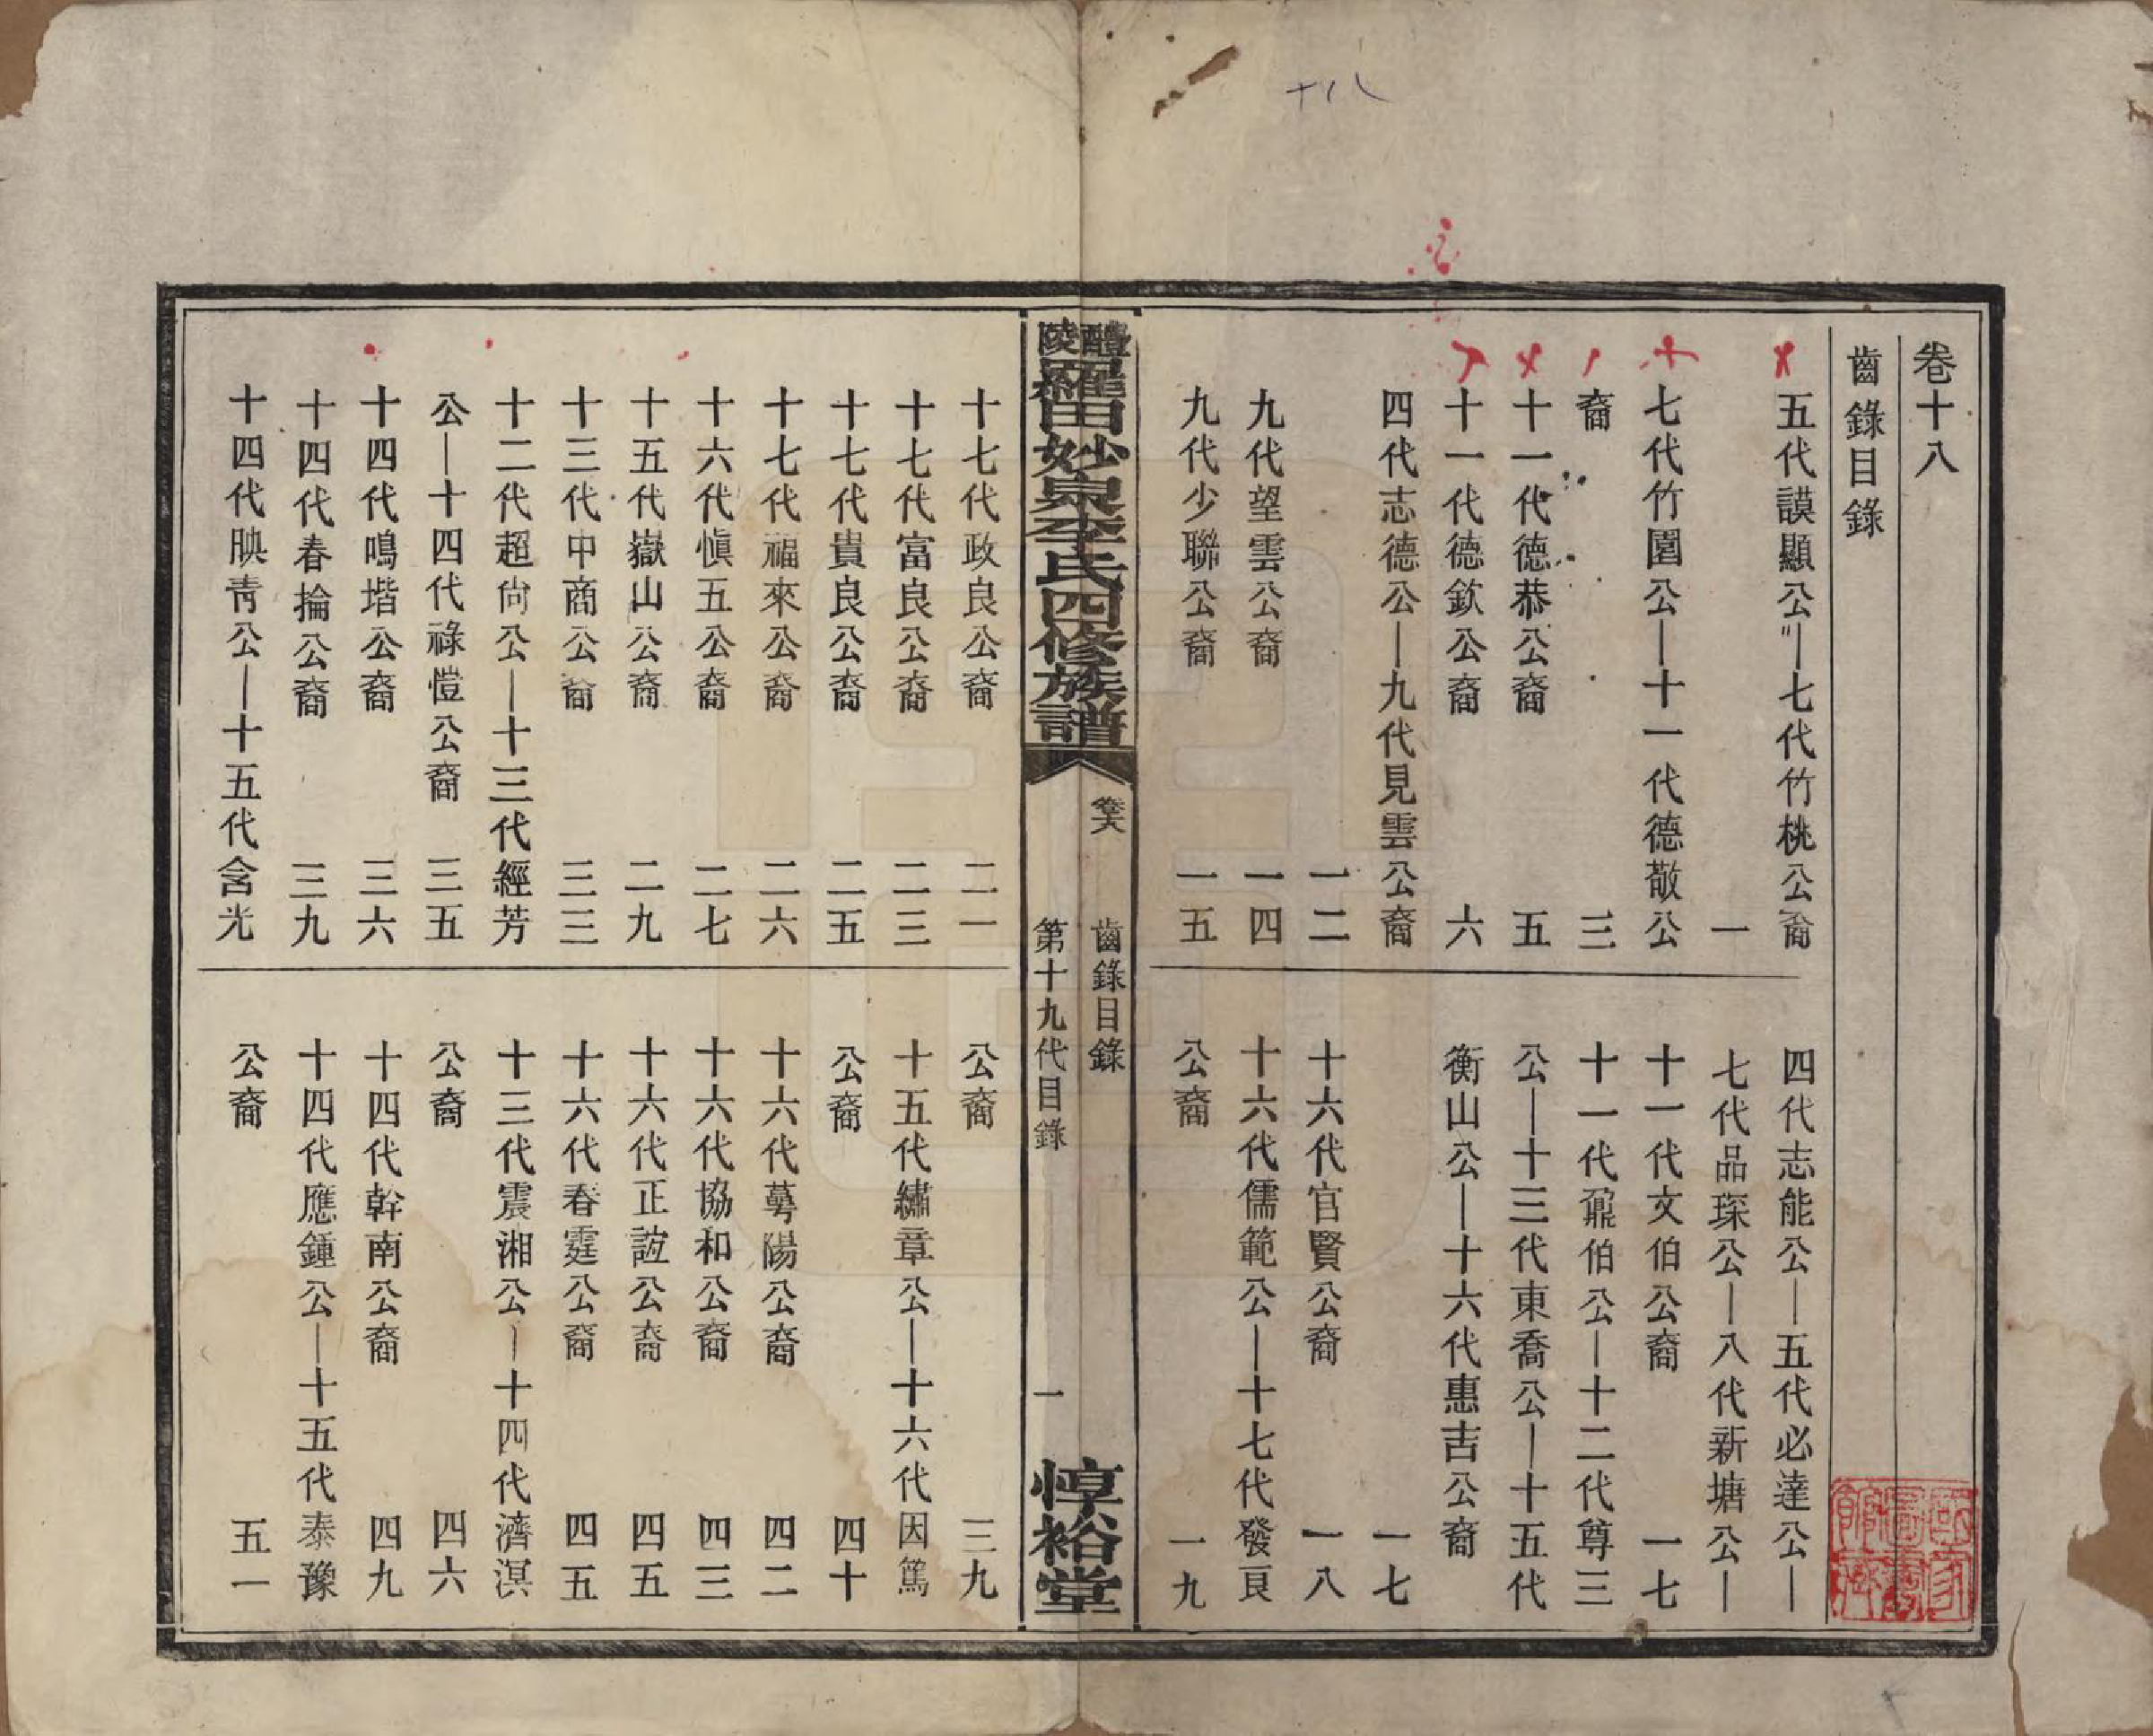 卷十八
齒錄目錄
五代謨顯公—七代竹桃公裔
一
七代竹園公—十一代德敬公
裔 三
十一代德恭公裔 五
十一代德欽公裔 六
四代志德公—九代見雲公裔
一二
九代望雲公裔 一四
九代少聯公裔 一五
四代志能公—五代必達公—
七代品琛公—八代新塘公—
十一代文伯公裔 一七
十一代鼐伯公—十二代尊三
公—十三代東喬公—十五代
衡山公—十六代惠吉公裔
一七
十六代官賢公裔 一八
十六代儒範公—十七代發良
公裔 一九
醴陵羅田妙泉李氏四修族譜
卷十八
齒錄目錄
第十九代目錄
一
惇裕堂
十七代政良公裔 二一
十七代富良公裔 二三
十七代貴良公裔 二五
十七代福來公裔 二六
十六代慎五公裔 二七
十五代嶽山公裔 二九
十三代中商公裔 三三
十二代超尙公—十三代經芳
公—十四代祿愷公裔 三五
十四代鳴堦公裔 三六
十四代春掄公裔 三九
十四代映靑公—十五代含光
公裔 三九
十五代繡章公—十六代因篤
公裔 四十
十六代蕚陽公裔 四二
十六代協和公裔 四三
十六代正誼公裔 四五
十六代春霆公裔 四五
十三代震湘公—十四代濟溟
公裔 四六
十四代幹南公裔 四九
十四代應鍾公—十五代泰豫
公裔 五一
國家圖書館藏
十八